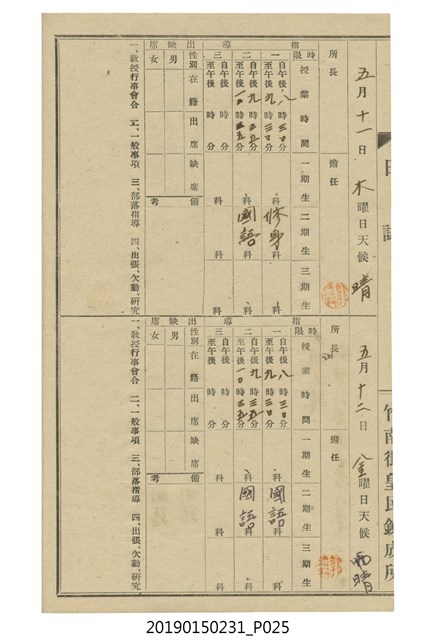 日誌
竹南街皇民鍊成所
五月十一日 木曜日 天候 晴
所長
擔任
指導
時限 授業時間 一期生 二期生 三期生
一 自午後八時三〇分 至午後九時三〇分 科 修身 科
二 自午後九時三五分 至午後一〇時三五分 科 國語 科
三 自午後 時 分 至午後 時 分 科 科
出缺席
性別 在籍 出席 缺席 備考
男
女
一、敎授行事會合 二、一般事項 三、部落指導 四、出張、欠勤、研究
五月十二日 金曜日 天候 雨晴
所長
擔任
指導
時限 授業時間 一期生 二期生 三期生
一 自午後八時三〇分 至午後九時三〇分 科 國語 科
二 自午後九時三五分 至午後一〇時三五分 科 國語 科
三 自午後 時 分 至午後 時 分 科 科
出缺席
性別 在籍 出席 缺席 備考
男
女
一、敎授行事會合 二、一般事項 三、部落指導 四、出張、欠勤、研究
20190150231_P025